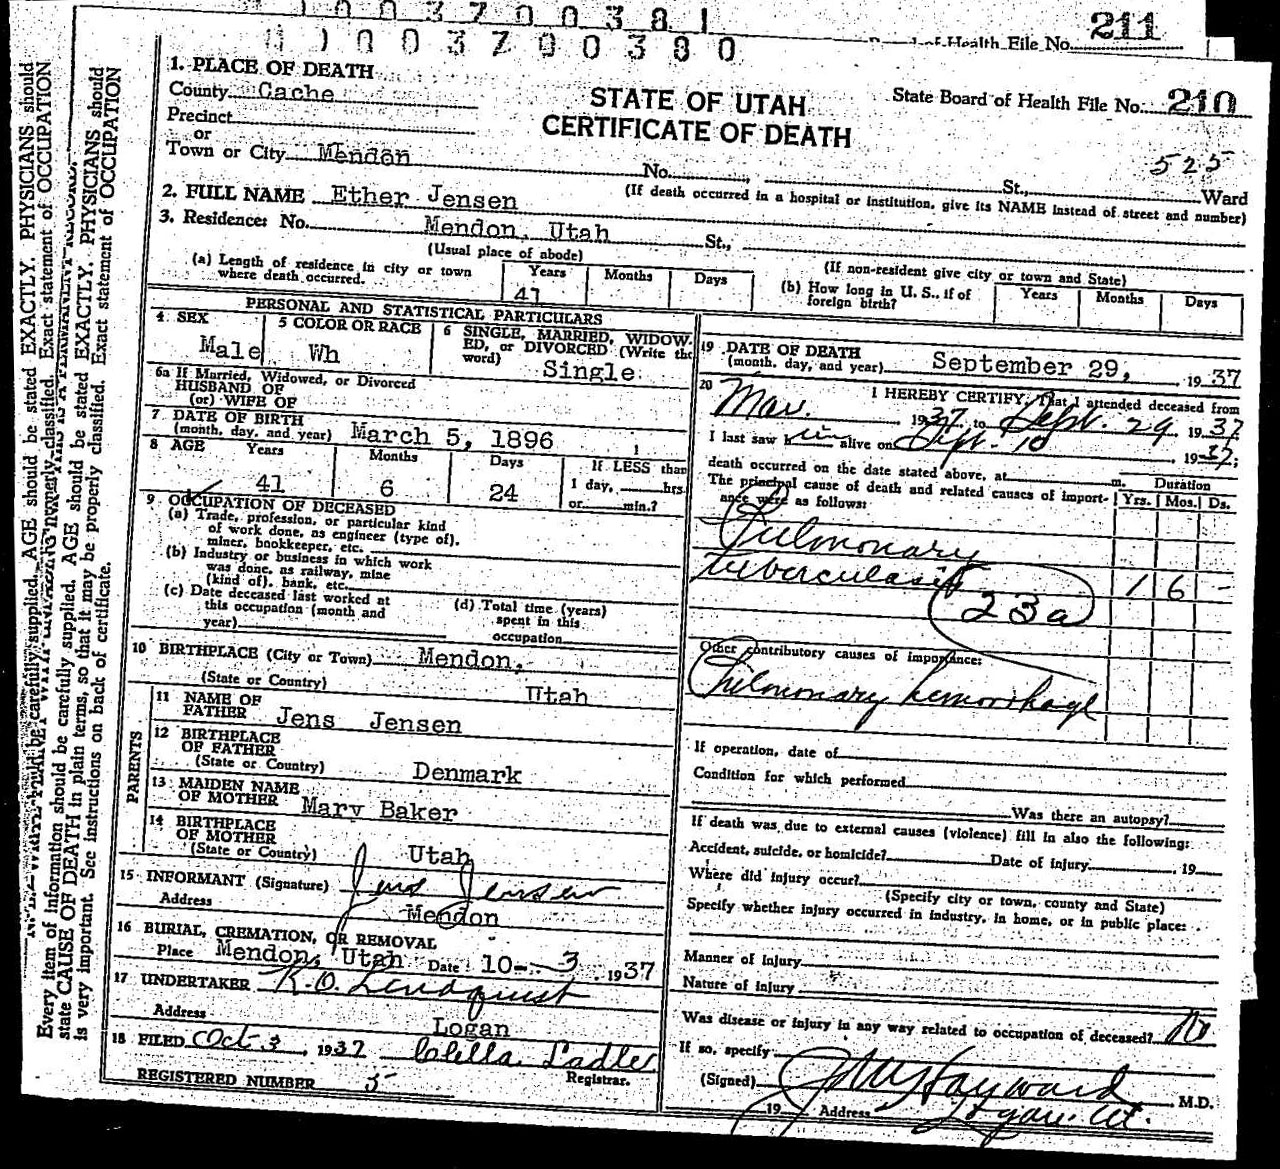 1 0 0 3 7 0 0 3 8 1
1 0 0 3 7 0 0 3 8 0
of Health File No. 211
State Board of Health File No. 210
STATE OF UTAH
CERTIFICATE OF DEATH
1. PLACE OF DEATH
County Cache
Precinct
or
Town or City Mendon
525
No. St., Ward
(If death occurred in a hospital or institution, give its NAME instead of street and number)
2. FULL NAME Ether Jensen
3. Residence: No. Mendon, Utah St.,
(Usual place of abode)
(If non-resident give city or town and State)
(a) Length of residence in city or town
where death occurred.
Years Months Days
41
(b) How long in U. S., if of
foreign birth?
Years Months Days
PERSONAL AND STATISTICAL PARTICULARS
4 SEX
Male
5 COLOR OR RACE
Wh
6 SINGLE, MARRIED, WIDOW-
ED, or DIVORCED (Write the
word)
Single
6a If Married, Widowed, or Divorced
HUSBAND OF
(or) WIFE OF
7 DATE OF BIRTH
(month, day, and year) March 5, 1896
8 AGE Years Months Days
41 6 24
If LESS than
1 day, hrs.
or min.?
9 OCCUPATION OF DECEASED
(a) Trade, profession, or particular kind
of work done, as engineer (type of),
miner, bookkeeper, etc.
(b) Industry or business in which work
was done, as railway, mine
(kind of), bank, etc.
(c) Date deceased last worked at
this occupation (month and
year)
(d) Total time (years)
spent in this
occupation
10 BIRTHPLACE (City or Town) Mendon,
(State or Country) Utah
PARENTS
11 NAME OF
FATHER Jens Jensen
12 BIRTHPLACE
OF FATHER
(State or Country) Denmark
13 MAIDEN NAME
OF MOTHER Mary Baker
14 BIRTHPLACE
OF MOTHER
(State or Country) Utah
15 INFORMANT (Signature) Jens Jensen
Address Mendon
16 BURIAL, CREMATION, OR REMOVAL
Place Mendon, Utah Date 10- 3 1937
17 UNDERTAKER K.O. Lindquist
Address Logan
18 FILED Oct 3, 1937 Clella Sadler
Registrar.
REGISTERED NUMBER 5
19 DATE OF DEATH
(month, day, and year) September 29, 1937
20 I HEREBY CERTIFY, That I attended deceased from
Mar. 1937 to Sept. 29, 1937
I last saw him alive on Sept. 10, 1937;
death occurred on the date stated above, at m. Duration
The principal cause of death and related causes of import-
ance were as follows:
Yrs. Mos. Ds.
Pulmonary
tuberculosis 1 6 -
23a
Other contributory causes of importance:
Pulmonary hemorrhage
If operation, date of
Condition for which performed
Was there an autopsy?
If death was due to external causes (violence) fill in also the following:
Accident, suicide, or homicide? Date of injury 19
Where did injury occur?
(Specify city or town, county and State)
Specify whether injury occurred in industry, in home, or in public place:
Manner of injury
Nature of injury
Was disease or injury in any way related to occupation of deceased? No
If so, specify
(Signed) Hayward M.D.
19 Address Logan. Ut.
Every item of information should be carefully supplied. AGE should be stated EXACTLY. PHYSICIANS should
state CAUSE OF DEATH in plain terms, so that it may be properly classified. Exact statement of OCCUPATION
is very important. See instructions on back of certificate.